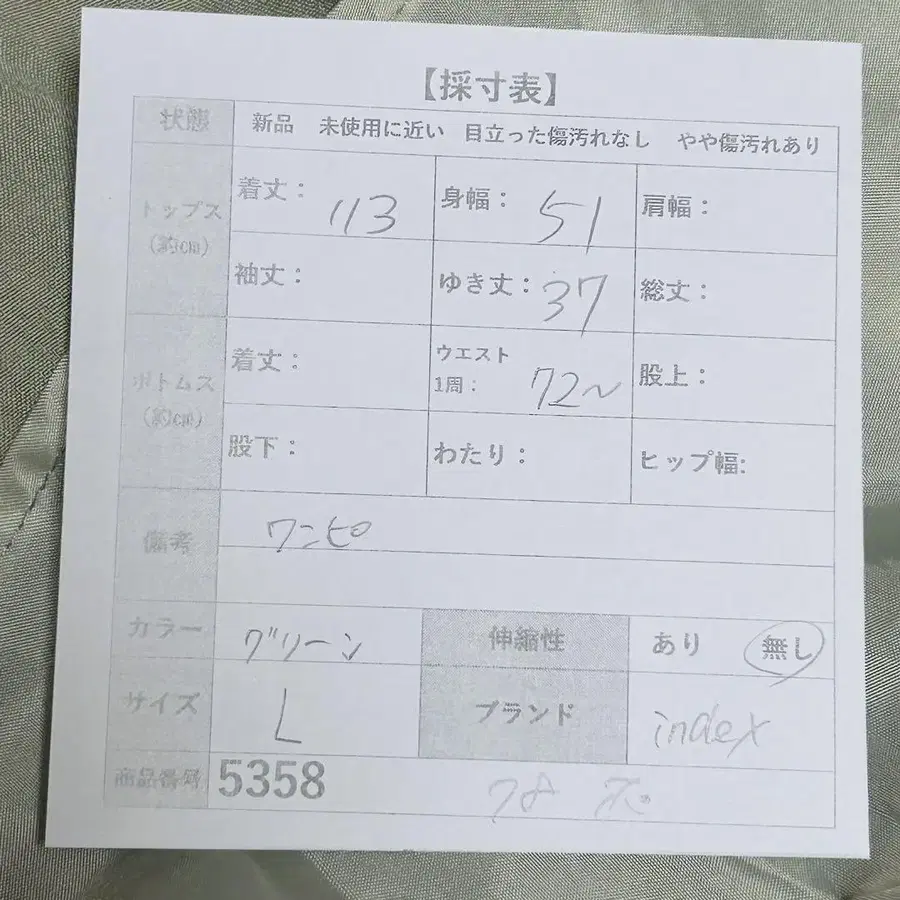 【採寸表】
状態 新品 未使用に近い 目立った傷汚れなし やや傷汚れあり
トップス (約cm)
着丈： 113 身幅： 51 肩幅：
袖丈： ゆき丈： 37 総丈：
ボトムス (約cm)
着丈： ウエスト 1周： 72～ 股上：
股下： わたり： ヒップ幅:
備考 ワンピ
カラー グリーン 伸縮性 あり 無し
サイズ L ブランド index
商品番号 5358